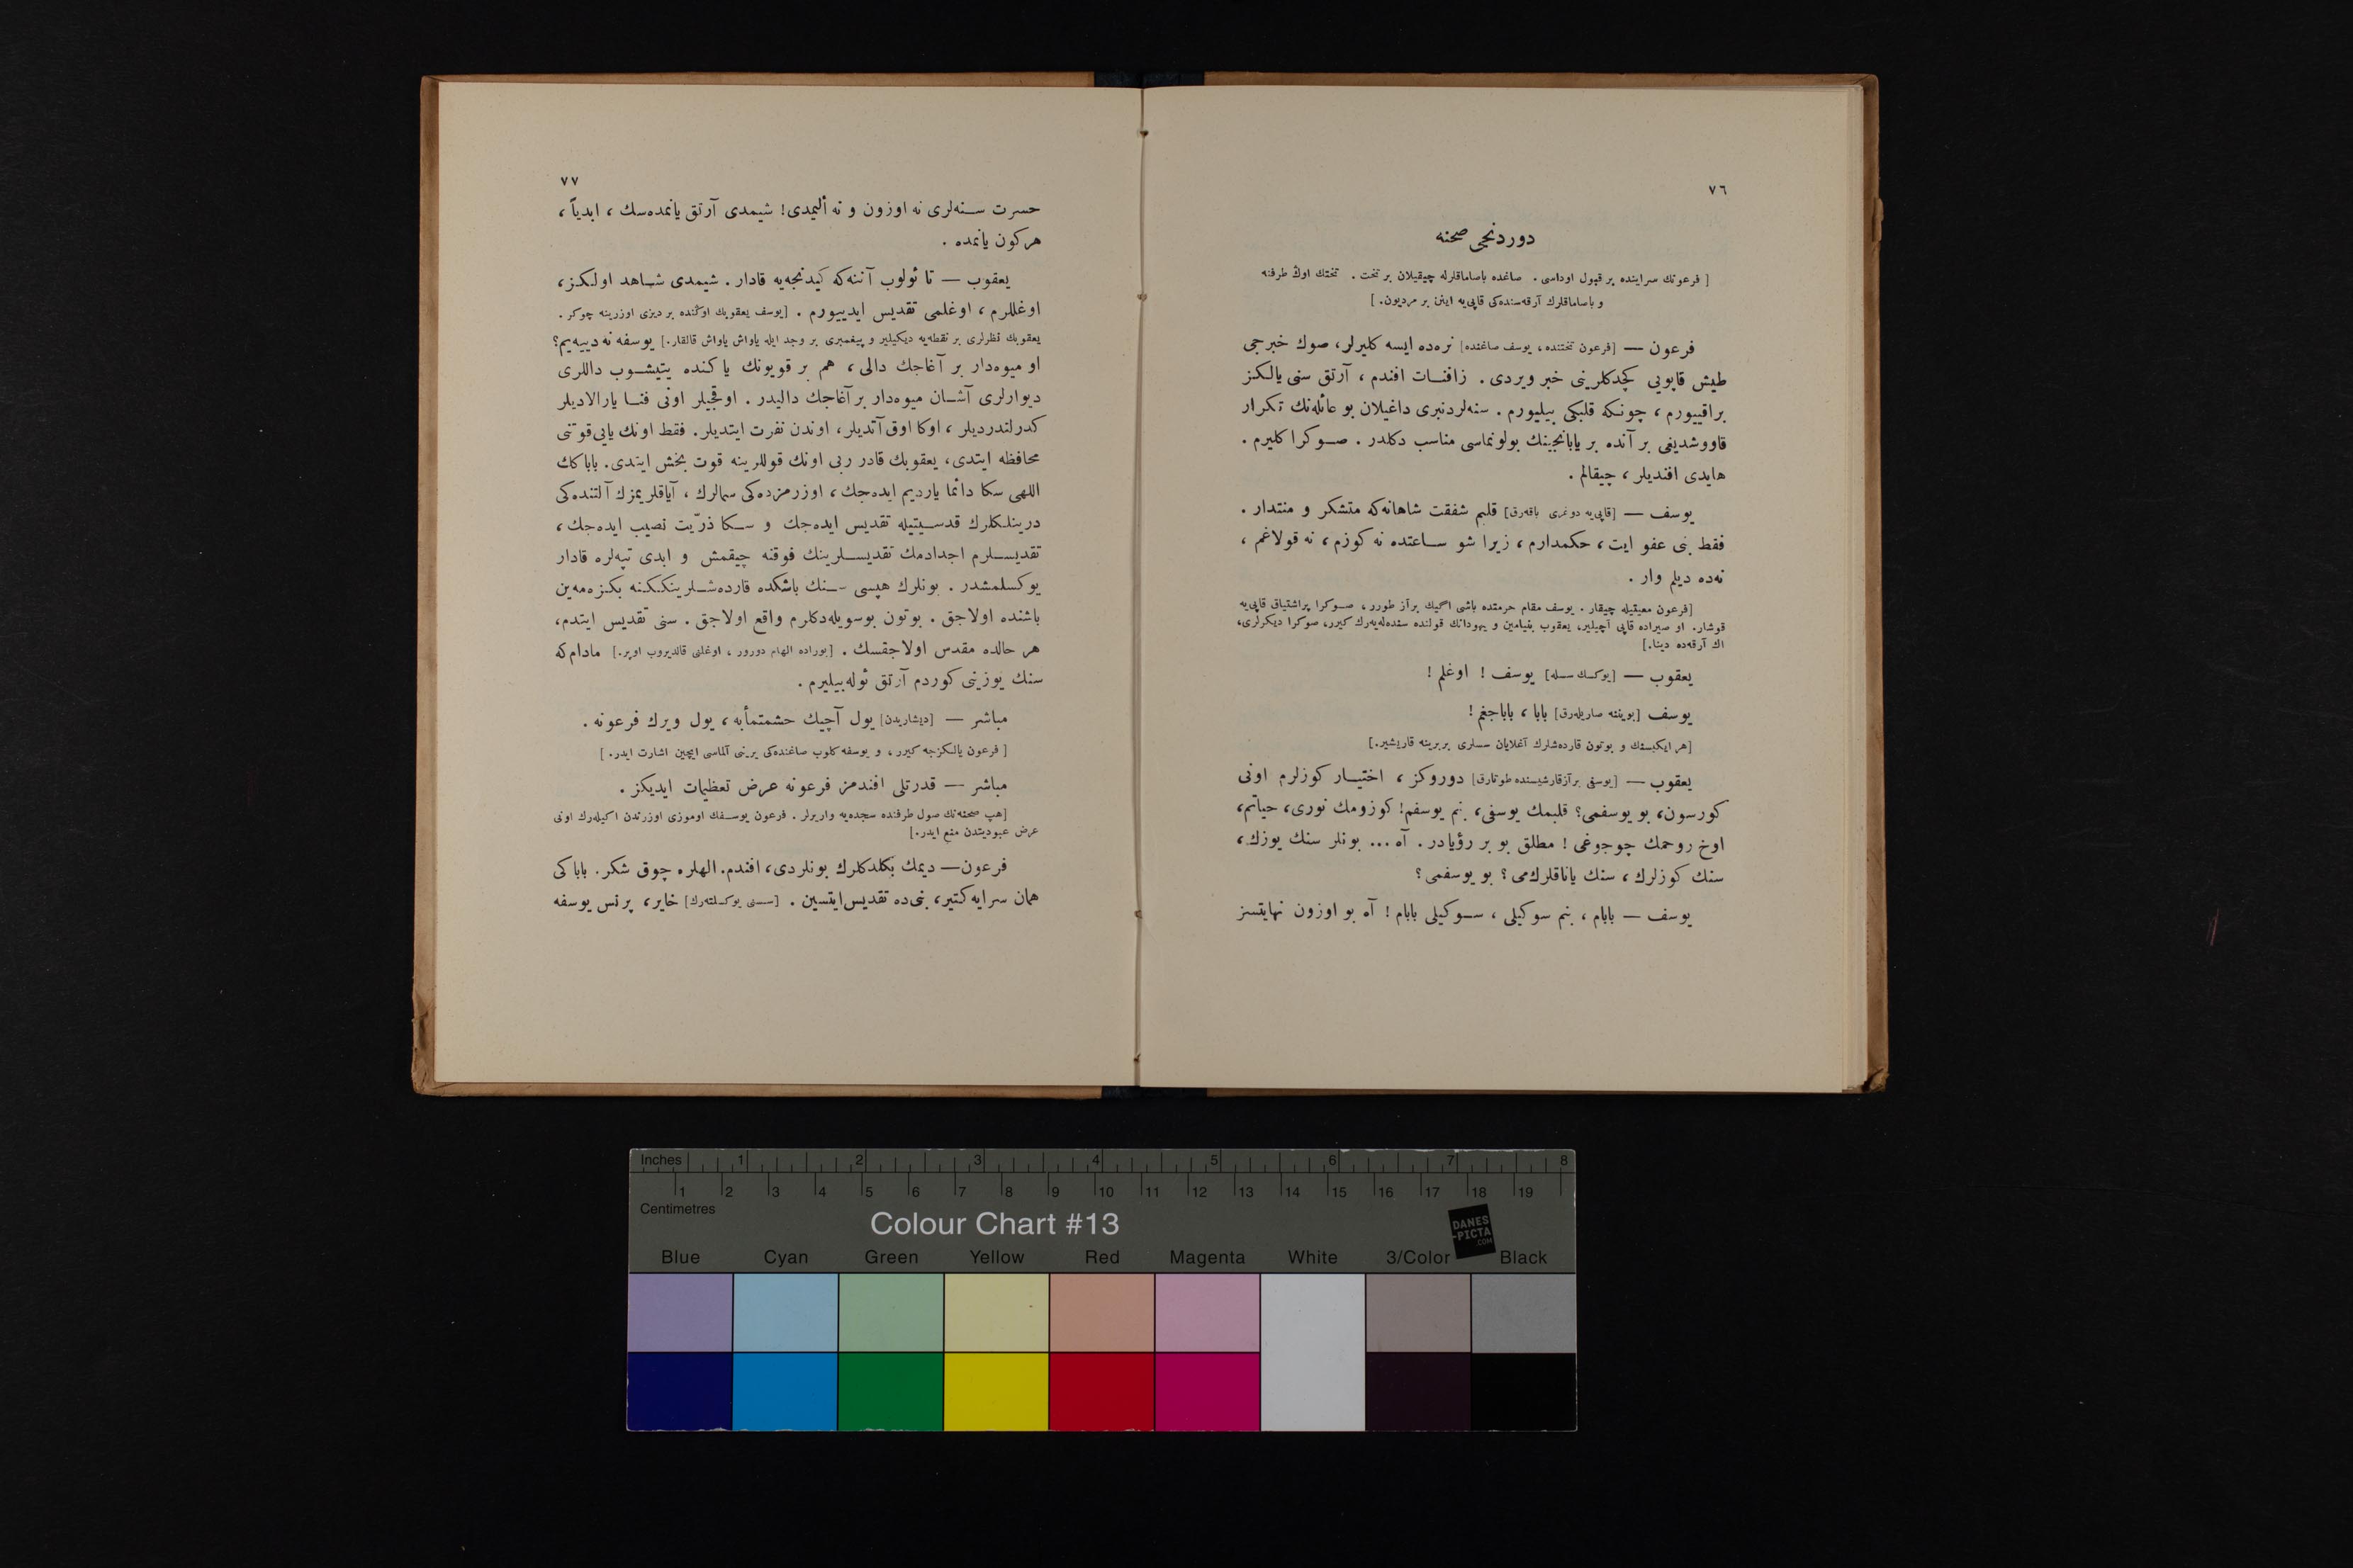 ٧٦
دوردنجی صحنه
[ فرعونك سراينده بر قبول اوداسی . صاغده باصاماقلرله چيقيلان بر تخت . تختك اوڭ طرفنه
و باصاماقلرك آرقه‌سنده‌كی قاپی‌يه اينن بر مرديون. ]
فرعون — [فرعون تختنده ، يوسف صاغنده] نره‌ده ايسه كليرلر، صوك خبرجی
طيش قاپويی كچدكلرينی خبر ويردی . زافنات افندم ، آرتق سنی يالكز
براقييورم ، چونكه قلبكی بيليورم . سنه‌لردنبری داغيلان بو عائله‌نك تكرار
قاووشديغی بر آنده بر يابانجينك بولونماسی مناسب دكلدر . صوكرا كليرم .
هايدی افنديلر ، چيقالم .
يوسف — [قاپی‌يه دوغری باقه‌رق] قلبم شفقت شاهانه‌كه متشكر و منتدار .
فقط بنی عفو ايت ، حكمدارم ، زيرا شو ساعتده نه كوزم ، نه قولاغم ،
نه‌ده ديلم وار .
[فرعون معيتيله چيقار . يوسف مقام حرمتده باشی اگيك برآز طورر ، صوكرا پراشتياق قاپی‌يه
قوشار. او صيراده قاپی آچيلير، يعقوب بنيامين و يهودانك قولنده سنده‌له‌يه‌رك كيرر، صوكرا ديكرلری،
اك آرقه‌ده دينا.]
يعقوب — [يوكسك سسله] يوسف ! اوغلم !
يوسف [بويننه صاريله‌رق] بابا ، باباجغم !
[هر ايكيسنك و بوتون قارده‌شلرك آغلايان سسلری بربرينه قاريشير.]
يعقوب — [يوسفی برآزقارشيسنده طوتارق] دوروكز ، اختيار كوزلرم اونی
كورسون، بو يوسفمی؟ قلبمك يوسفی، بنم يوسفم! كوزومك نوری، حياتم،
اوخ روحمك چوجوغی ! مطلق بو بر رؤيادر . آه ... بونلر سنك يوزك،
سنك كوزلرك ، سنك ياناقلرك‌می ؟ بو يوسفمی ؟
يوسف — بابام ، بنم سوكيلی ، سوكيلی بابام ! آه بو اوزون نهايتسز
٧٧
حسرت سنه‌لری نه اوزون و نه أليمدی! شيمدی آرتق يانمده‌سك ، ابدياً ،
هركون يانمده .
يعقوب — تا ئولوب آننه‌كه كيدنجه‌يه قادار . شيمدی شاهد اولكز،
اوغللرم ، اوغلمی تقديس ايدييورم . [يوسف يعقوبك اوڭنده بر ديزی اوزرينه چوكر .
يعقوبك نظرلری بر نقطه‌يه ديكيلير و پيغمبری بر وجد ايله ياواش ياواش قالقار.] يوسفه نه دييه‌يم؟
او ميوه‌دار بر آغاجك دالی ، هم بر قويونك ياكنده يتيشوب داللری
ديوارلری آشان ميوه‌دار بر آغاجك داليدر . اوقجيلر اونی فنا يارالاديلر
كدرلندرديلر ، اوكا اوق آتديلر، اوندن نفرت ايتديلر. فقط اونك يايی‌قوتنی
محافظه ايتدی، يعقوبك قادر ربی اونك قوللرينه قوت بخش ايتدی. باباكك
اللهی سكا دائما يارديم ايده‌جك ، اوزرمزده‌كی سمالرك ، آياقلريمزك آلتنده‌كی
درينلكلرك قدسيتيله تقديس ايده‌جك و سكا ذرّيت نصيب ايده‌جك ،
تقديسلرم اجدادمك تقديسلرينك فوقنه چيقمش و ابدی تپه‌لره قادار
يوكسلمشدر . بونلرك هپسی سنك باشكده قارده‌شلرينككنه بكزه‌مه‌ين
باشنده اولاجق . بوتون بوسويله‌دكلرم واقع اولاجق . سنی تقديس ايتدم،
هر حالده مقدس اولاجقسك . [بوراده الهام دورور ، اوغلنی قالديروب اوپر.] مادام‌كه
سنك يوزينی كوردم آرتق ئوله‌بيليرم .
مباشر — [ديشاريدن] يول آچيك حشمتمأبه ، يول ويرك فرعونه .
[ فرعون يالكزجه كيرر ، و يوسفه كلوب صاغنده‌كی يرينی آلماسی ايچين اشارت ايدر. ]
مباشر — قدرتلی افندمز فرعونه عرض تعظيمات ايديكز .
[هپ صحنه‌نك صول طرفنده سجده‌يه واريرلر . فرعون يوسفك اوموزی اوزرندن اكيله‌رك اونی
عرض عبوديتدن منع ايدر.]
فرعون— ديمك بكلدكلرك بونلردی، افندم. الهلره چوق شكر. باباكی
همان سرايه كتير، بنی‌ده تقديس‌ايتسين . [سسنی يوكسلته‌رك] خاير، پرنس يوسفه
Inches 1 2 3 4 5 6 7 8
1 2 3 4 5 6 7 8 9 10 11 12 13 14 15 16 17 18 19
Centimetres
Colour Chart #13
DANES
-PICTA
.COM
Blue Cyan Green Yellow Red Magenta White 3/Color Black